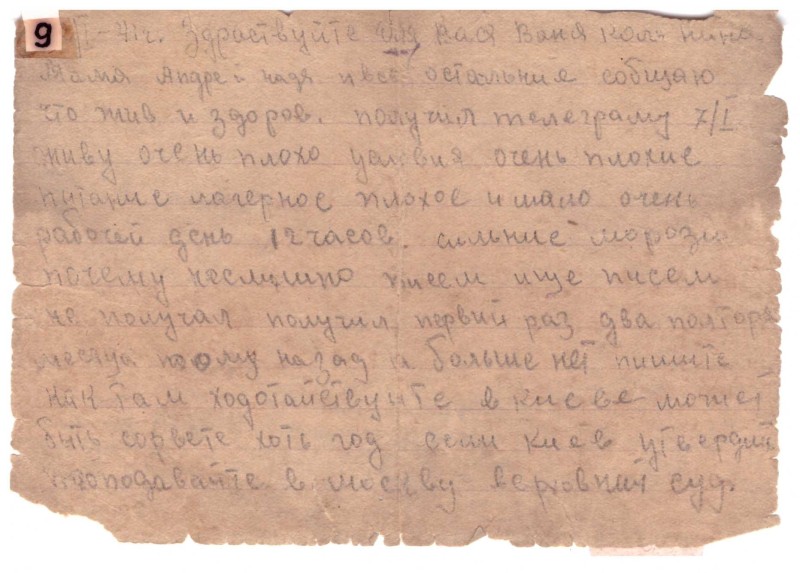 9
I-41г. Здраствуйте Вася Ваня Коля Нина
Мама Андрей надя и все остальние собщаю
что жив и здоров. получил телеграму 7/I
живу очень плохо условия очень плохие
питание лагерное плохое и мало очень
рабочей день 12 часов. сильние морози
почему неслишно писем ище писем
не получал получил первий раз два полтора
месяца тому назад и больше нет пишите
как там ходотайствуйте в киеве может
бить сорвете хоть год если Киев утвердит
то подавайте в москву верховний суд.